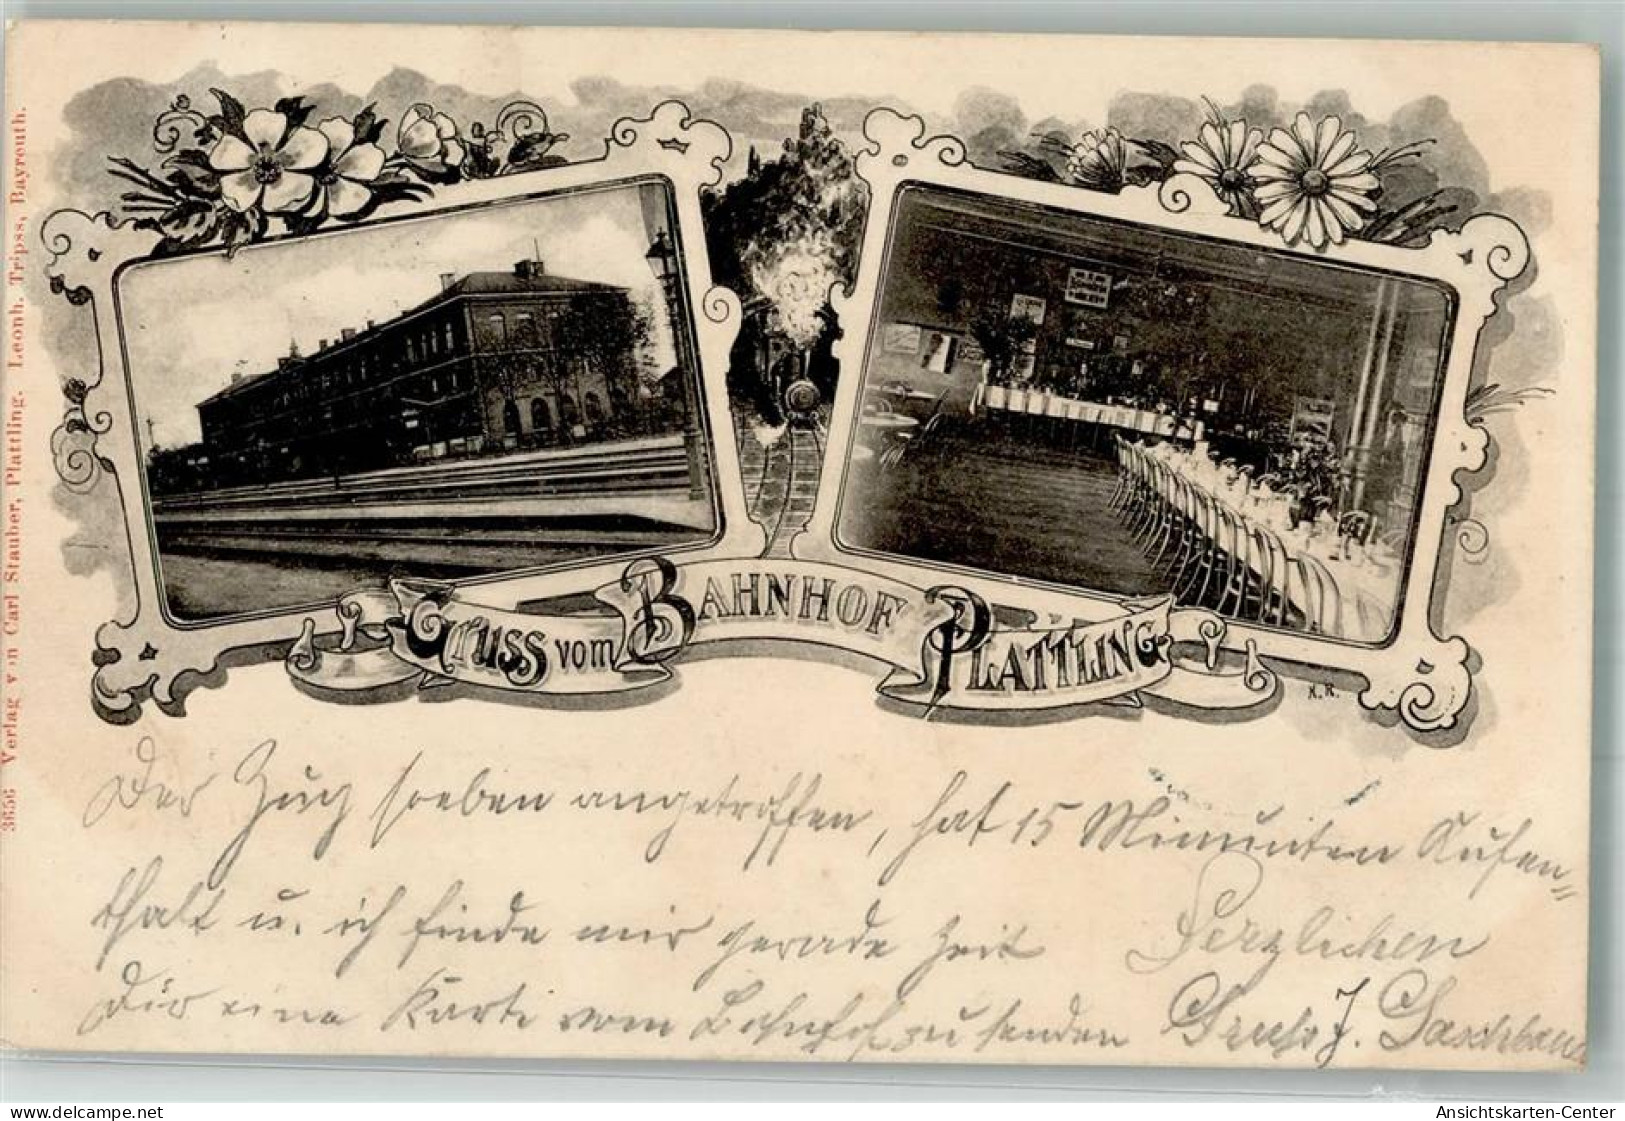 GRUSS VOM BAHNHOF PLATTLING
K.R.
3656 Verlag von Carl Stauber, Plattling. Leonh. Tripss, Bayreuth.
Der Zug soeben angetroffen, hat 15 Minuten Aufen=
thalt u. ich finde mir gerade Zeit
Dir eine Karte vom Bahnhof zu senden
Herzlichen
Gruss J.
delcampe.net
Ansichtskarten-Center